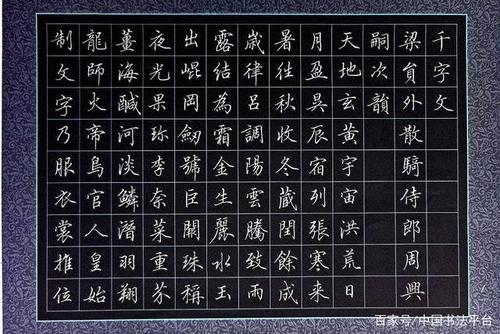 千字文
梁員外散騎侍郎周興
嗣次韻
天地玄黃宇宙洪荒日
月盈昃辰宿列張寒來
暑往秋收冬藏閏餘成
歲律呂調陽雲騰致雨
露結為霜金生麗水玉
出崐岡劒號巨闕珠稱
夜光果珎李柰菜重芥
薑海鹹河淡鱗潛羽翔
龍師火帝鳥官人皇始
制文字乃服衣裳推位
百家号/中国书法平台